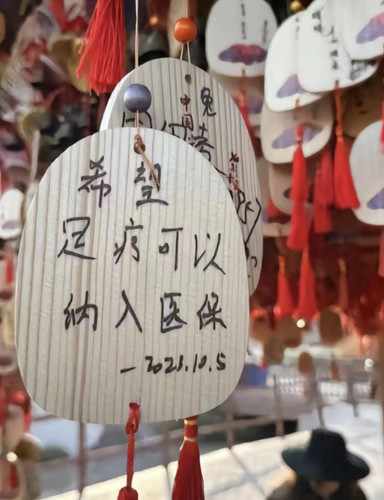 希望
足疗可以
纳入医保
-2021.10.5
中国